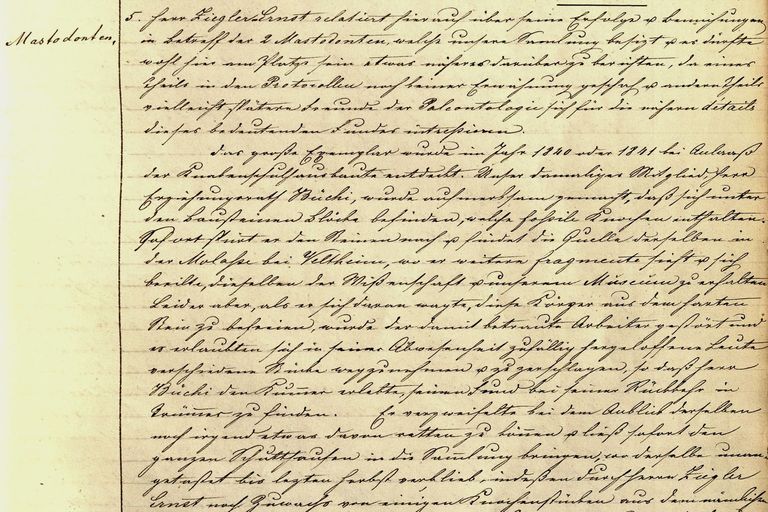 Mastodonten,
5. Herr Ziegler Ernst relatiert hierauf über seine Erfolge & Bemühungen
in Betreff der 2 Mastodonten, welche unsere Sammlung besizt & es dürfte
wohl hier am Platze sein etwas näheres darüber zu berichten, da eines
Theils in den Protocollen noch keiner Erwähnung geschah & andern Theils
vielleicht spätere Freunde der Paleontologie sich für die nähern details
dieses bedeutenden Fundes interessieren.
Das große Exemplar wurde im Jahr 1840 oder 1841 bei Anlaaß
der Knabenschulhausbaute entdekt. Unser damaliges Mitglied, Herr
Erziehungsrath Büchi, wurde aufmerksam gemacht, daß sich unter
den Bausteinen Blöke befinden, welche fossile Knochen enthalten.
Sofort spürt er den Steinen nach & findet die Quelle derselben in
der Molasse bei Veltheim, wo er weitere fragmente sieht & sich
beeilte, dieselben der Wissenschaft & unserem Museum zu erhalten
Leider aber, als er sich daran wagte, diese Körper aus dem harten
Stein zu befreien, wurde der damit betraute Arbeiter gestört und
es erlaubten sich in seiner Abwesenheit zufällig hergeloffene Leute
verschiedene Stüke wegzunehmen & zu zerschlagen, so daß Herr
Büchi den Kummer erlebte, seinen Fund bei seiner Rückkehr in
Trümmer zu finden. Er verzweifelte bei dem Anblick derselben
noch irgend etwas davon retten zu können & ließ sofort den
ganzen Schutthaufen in die Sammlung bringen, wo derselbe unan-
getastet bis lezten Herbst verblieb, indessen durch Herrn Ziegler
Ernst noch Zuwachs von einigen Knochenstüken aus dem nämlichen